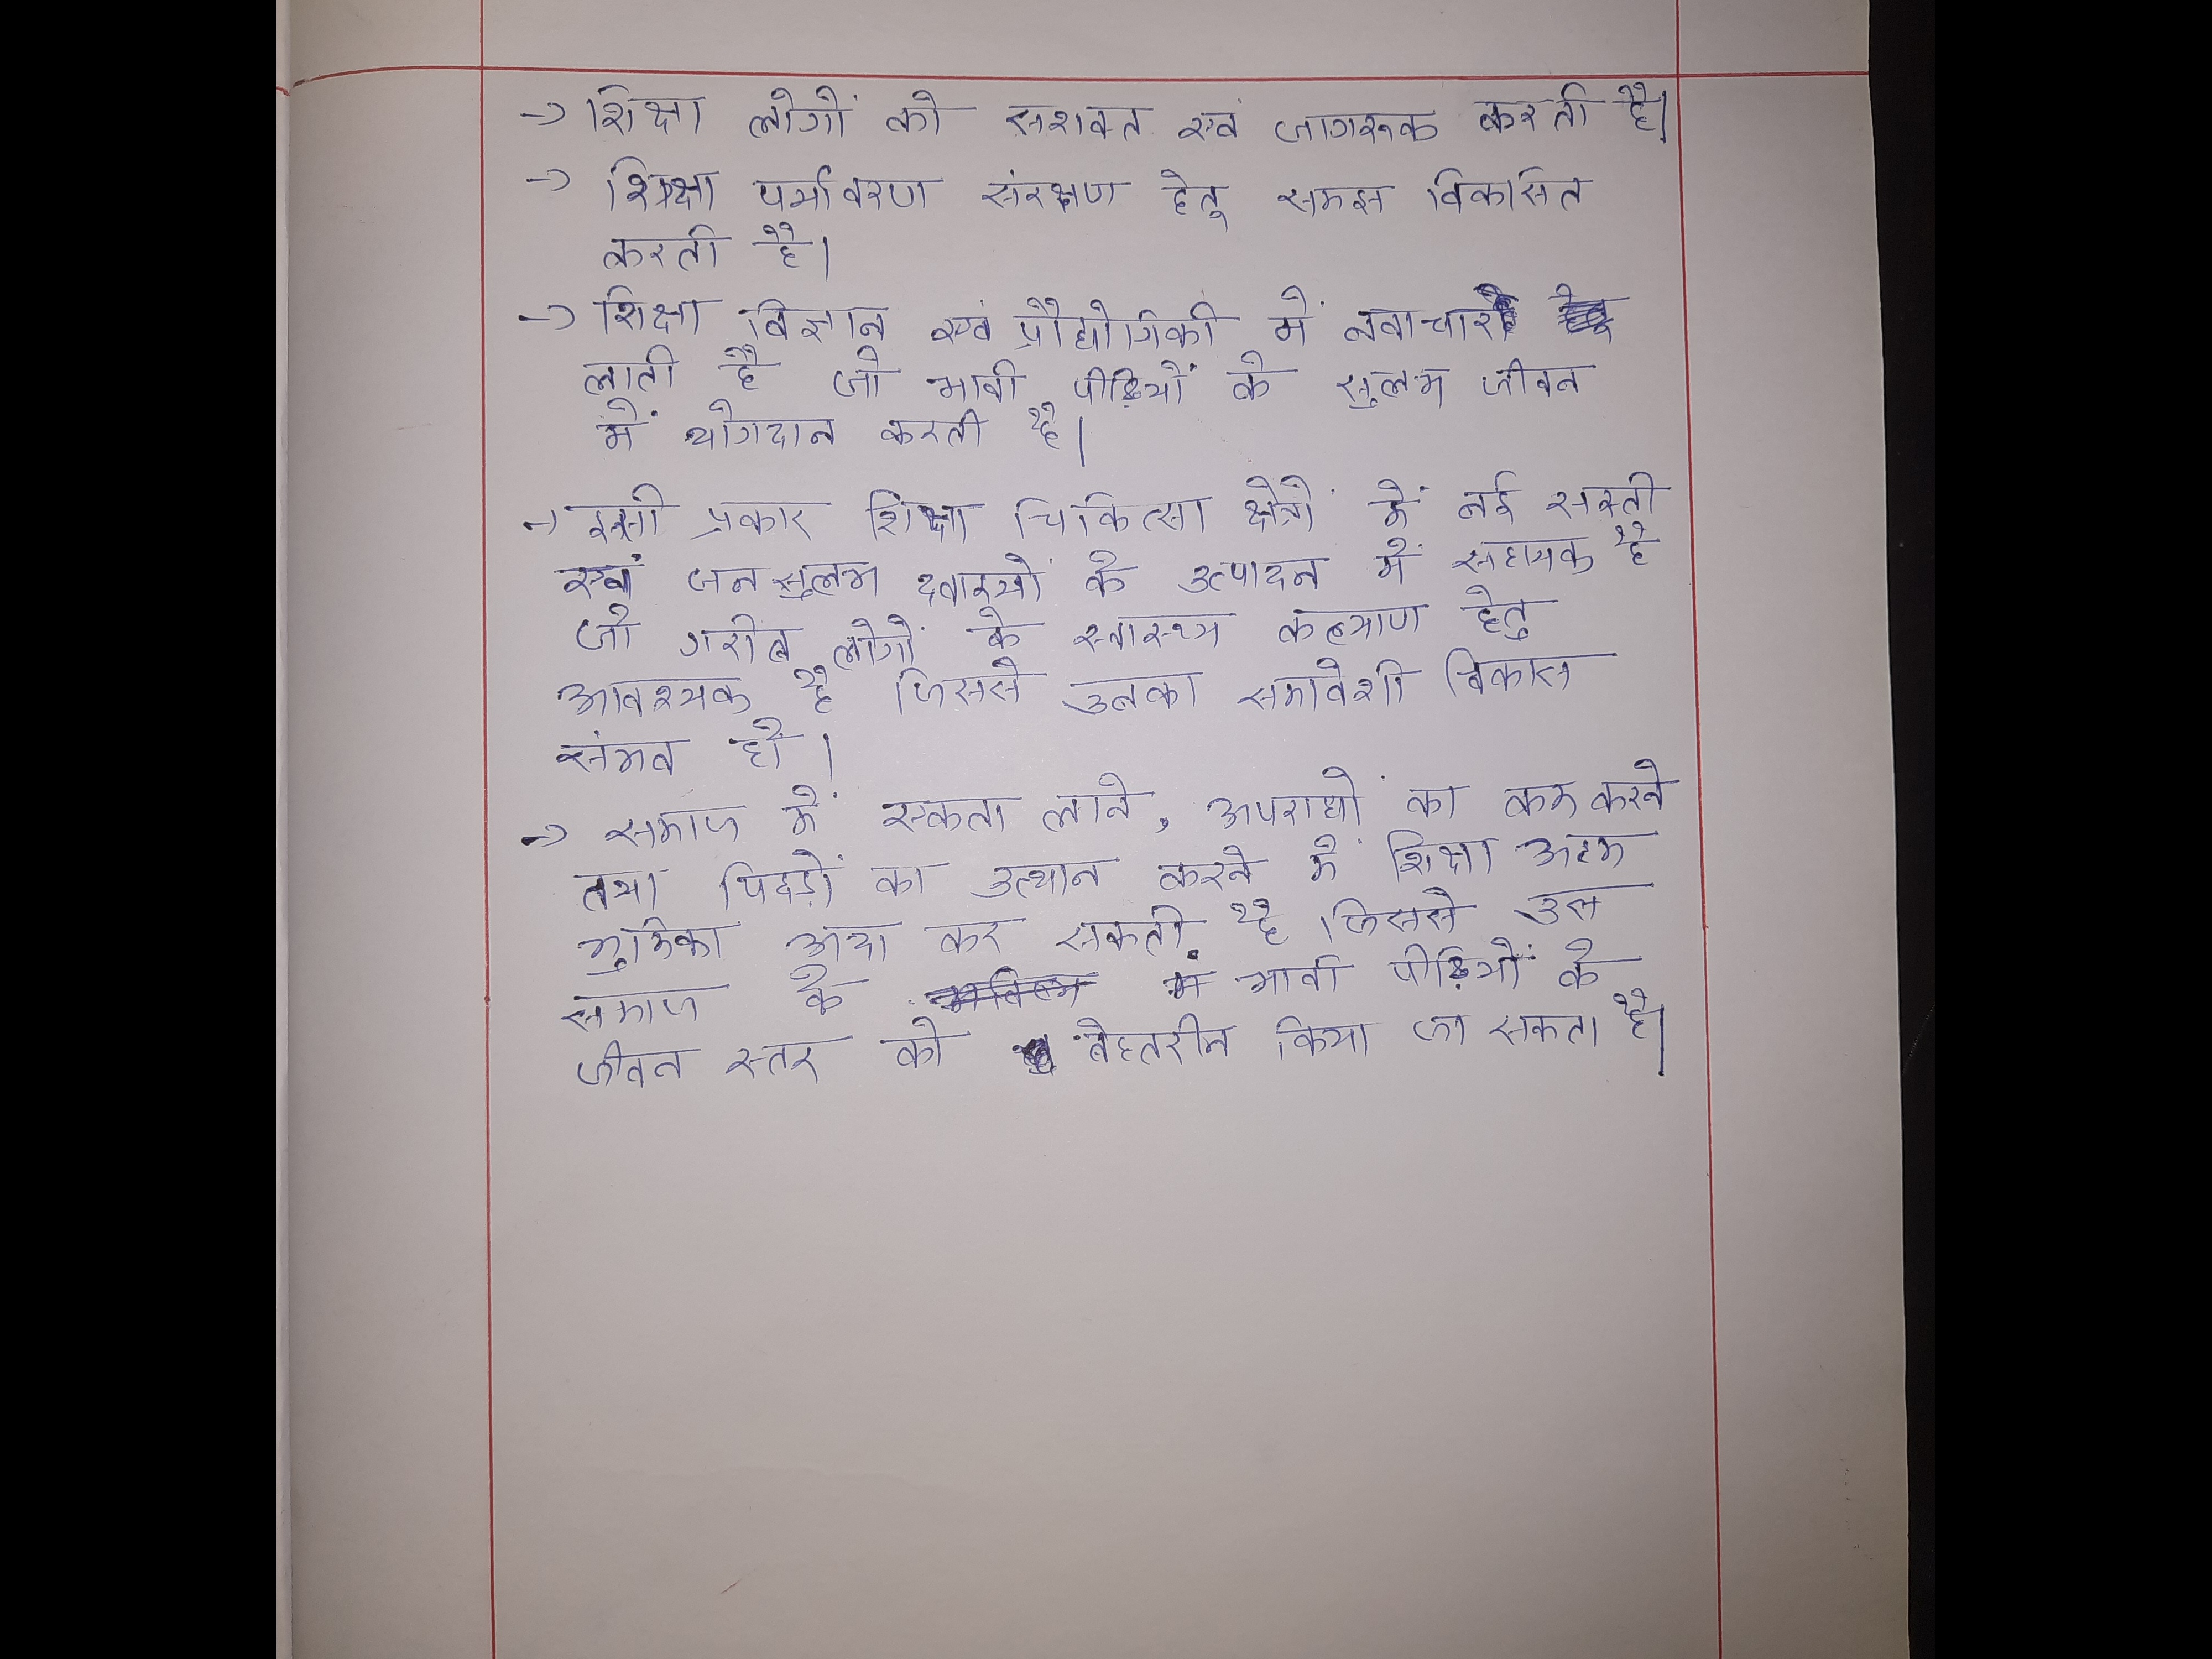 → शिक्षा लोगों को सशक्त एवं जागरूक करती है।
→ शिक्षा पर्यावरण संरक्षण हेतू समझ विकासित
करती है।
→ शिक्षा विज्ञान एवं प्रौद्योगिकी में नवाचार
लाती है जो भावी पीढ़ियों के सुलभ जीवन
में योगदान करती है।
→ इसी प्रकार शिक्षा चिकित्सा क्षेत्रों में नई सस्ती
एवं जन सुलभ दवाइयों के उत्पादन में सहायक है
जो गरीब लोगों के स्वास्थ्य कल्याण हेतु
आवश्यक है जिससे उनका समावेशी विकास
संभव हो।
→ समाज में एकता लाने, अपराधों का कम करने
तथा पिछड़ों का उत्थान करने में शिक्षा अहम
भुमिका अदा कर सकती है जिससे उस
समाज के भावी पीढ़ियों के
जीवन स्तर को बेहतरीन किया जा सकता है।